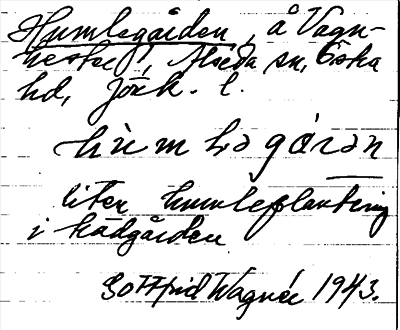 Humlegården, å Vagn-
hester, Alseda sn, Östra
hd, Jönk. l.
hùmləgárən
liten humleplantering
i trädgården
Gottfrid Wagnér 1943.